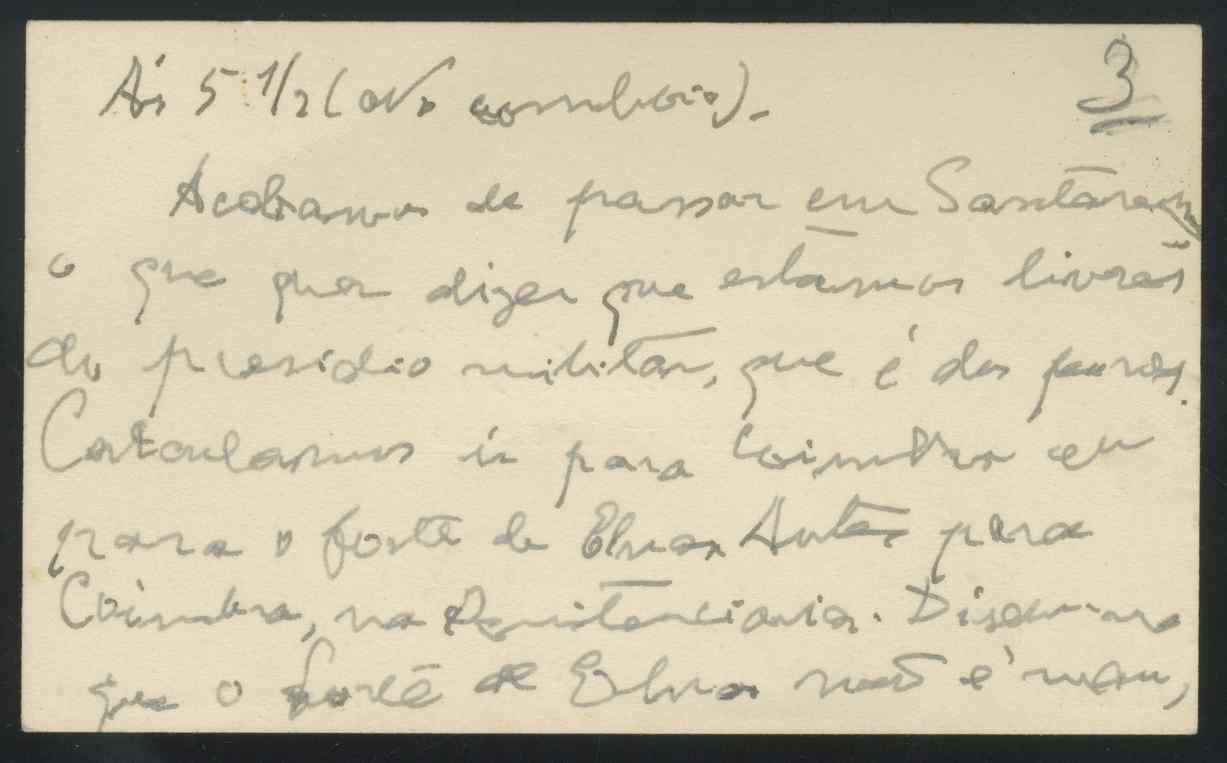 Ás 5 1/2 (No comboio).-
3
Acabamos de passar em Santarem
o que quer dizer que estamos livres
do presidio militar, que é dos peores.
Calculamos ir para Coimbra ou
para o forte de Elvas. Antes para
Coimbra, na Penitenciaria. Dizem-me
que o forte de Elvas não é mau,